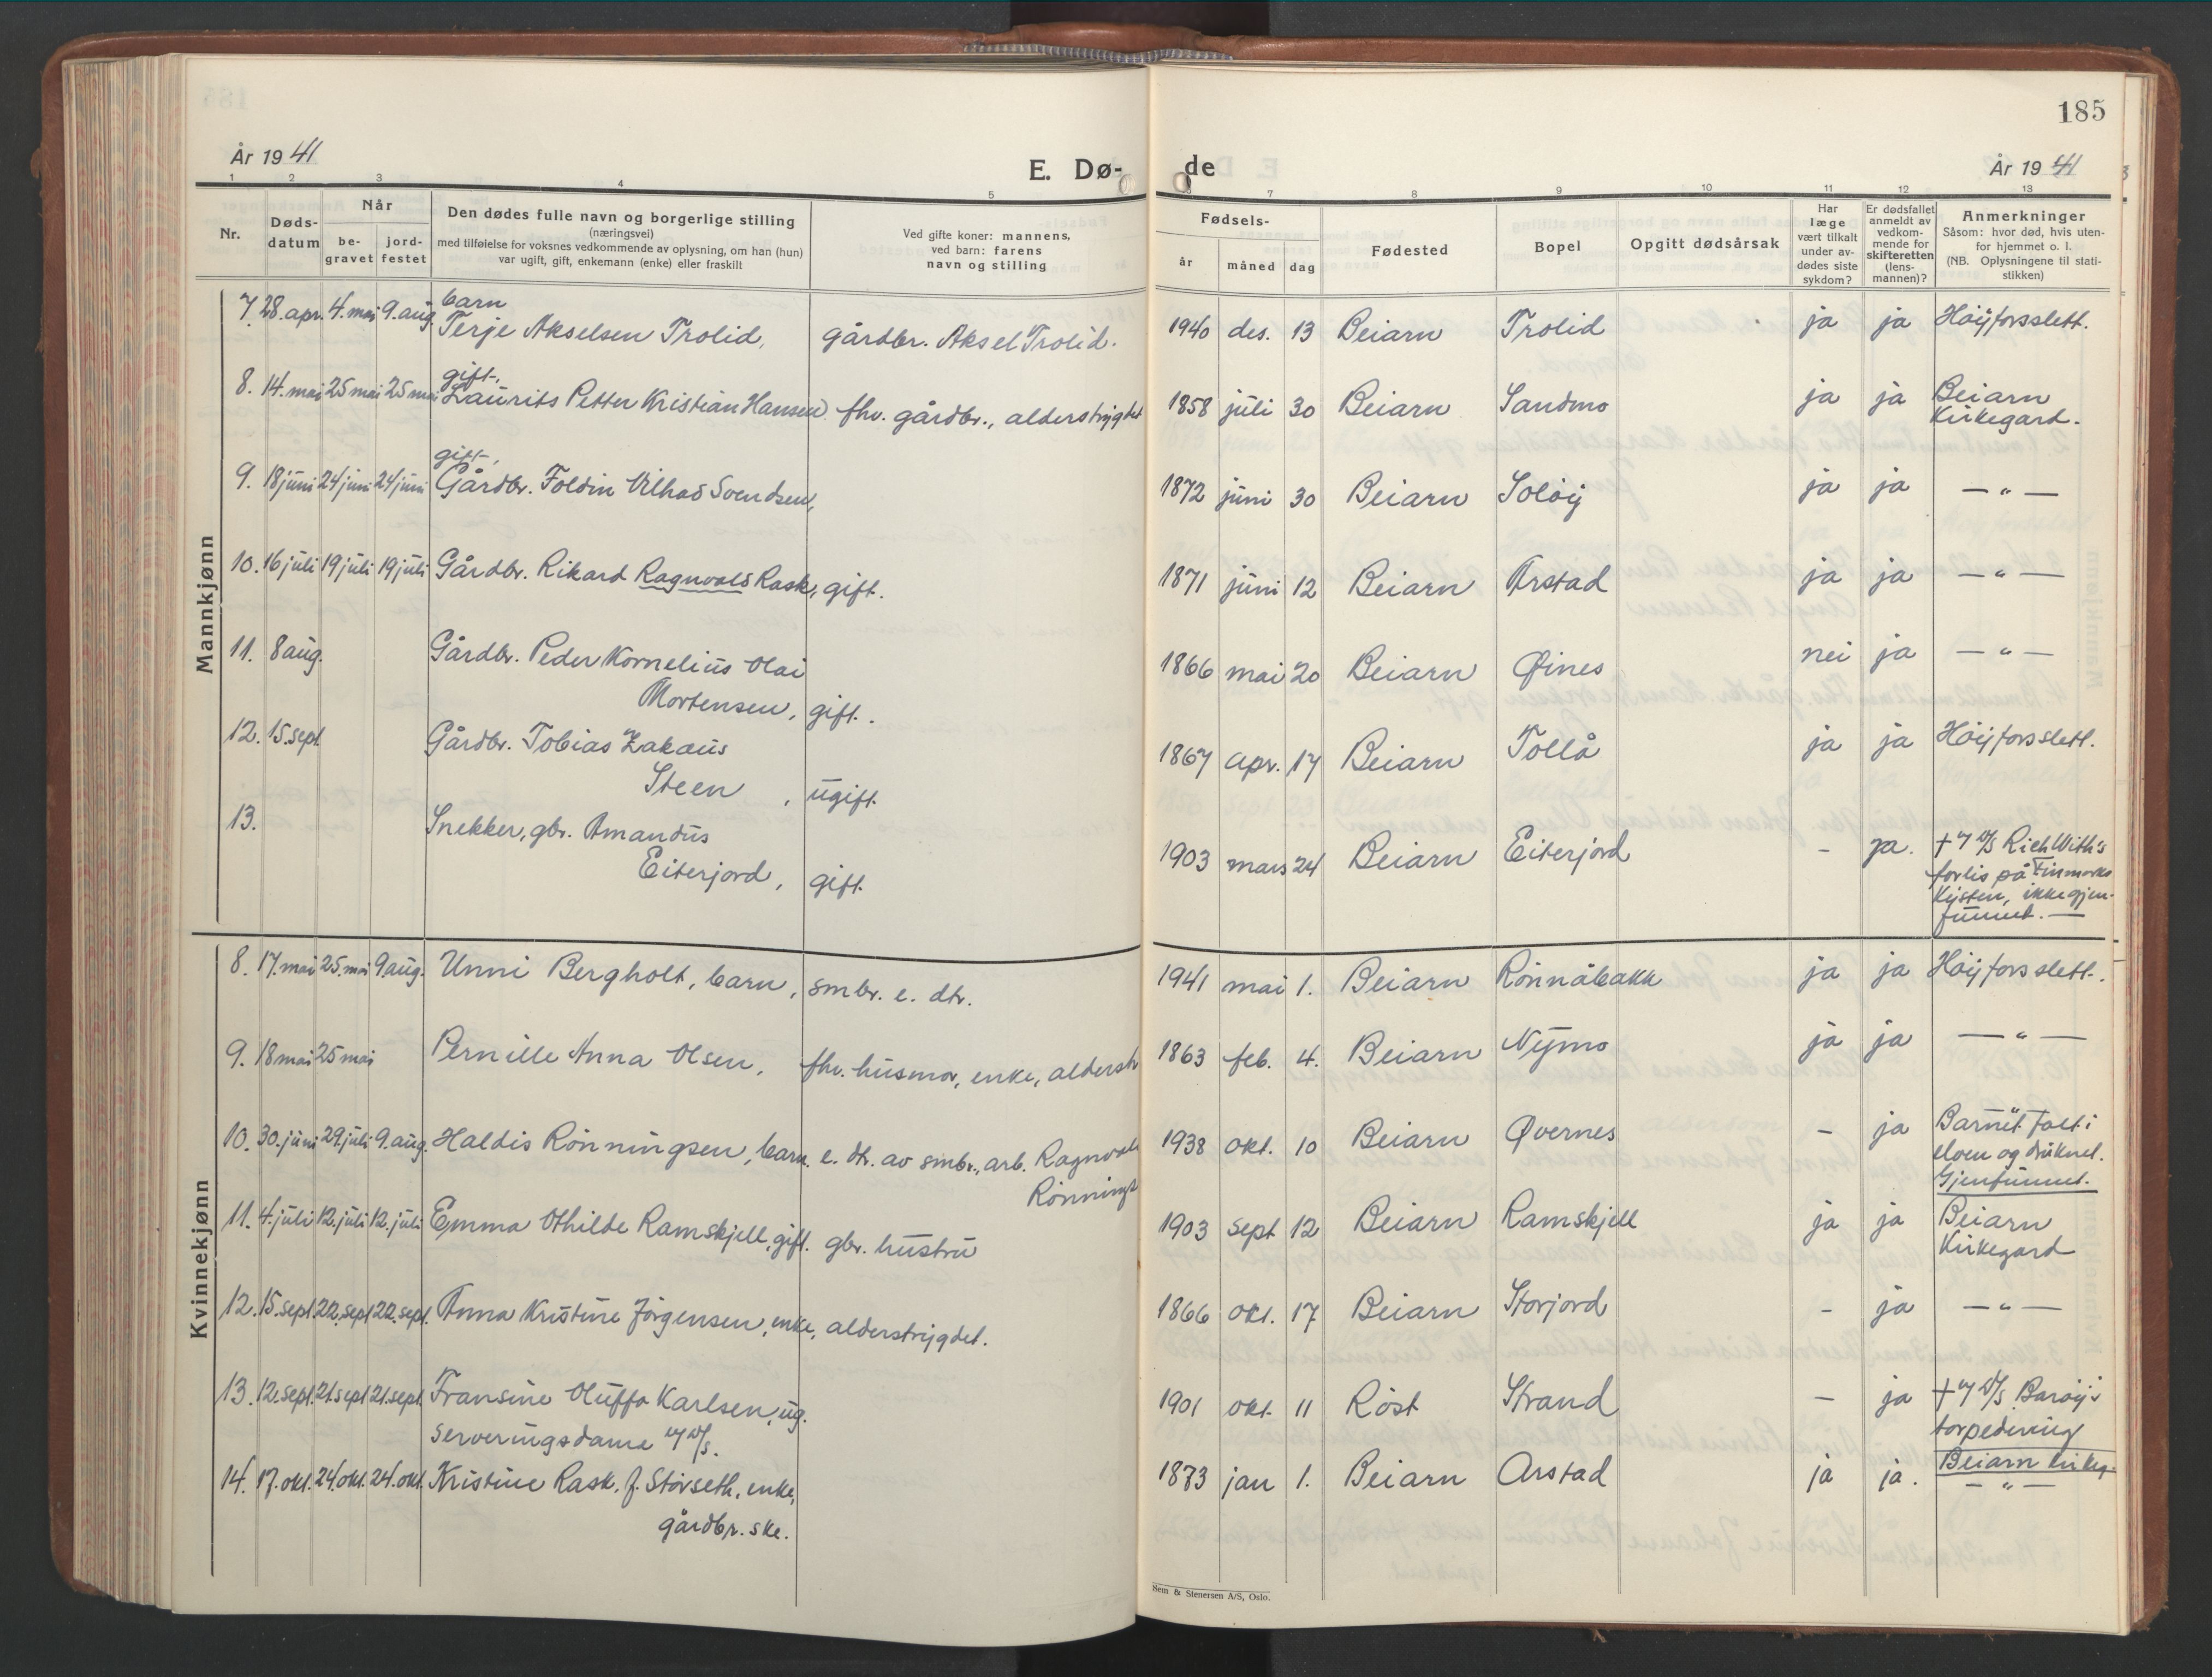 185
År 1941
E. Dø-
de
År 1941
1 2 3 4 5 6 7 8 9 10 11 12 13
Nr.
Døds-
datum
Når
be-
gravet
jord-
festet
Den dødes fulle navn og borgerlige stilling
(næringsvei)
med tilføielse for voksnes vedkommende av oplysning, om han (hun)
var ugift, gift, enkemann (enke) eller fraskilt
Ved gifte koner: mannens,
ved barn: farens
navn og stilling
Fødsels-
år måned dag
Fødested
Bopel
Opgitt dødsårsak
Har
læge
vært tilkalt
under av-
dødes siste
sykdom?
Er dødsfallet
anmeldt av
vedkom-
mende for
skifteretten
(lens-
mannen)?
Anmerkninger
Såsom: hvor død, hvis uten-
for hjemmet o. l.
(NB. Oplysningene til stati-
stikken)
Mannkjønn
barn
7. 28. apr. 4. mai 9. aug. Terje Akselsen Trolid, gårdbr. Aksel Trolid. 1940 des. 13 Beiarn Trolid ja ja Höijforsslett.
gift,
8. 14. mai 25 mai 25 mai Laurits Petter Kristian Hansen fhv. gårdbr., alderstrygdet 1858 juli 30 Beiarn Sandmo ja ja Beiarn
Kirkegard.
gift,
9. 18 juni 24 juni 24 juni Gårdbr. Foldin Vilhad Svendsen, 1872 juni 30 Beiarn Solöij ja ja — " —
10. 16 juli 19 juli 19 juli Gårdbr. Rikard Ragnvald Rask, gift. 1871 juni 12 Beiarn Arstad ja ja — " —
11. 8 aug. Gårdbr. Peder Kornelius Olai
Mortensen, gift. 1866 mai 20 Beiarn Øines nei ja — " —
12. 15. sept Gårdbr. Tobias Zakæus
Steen, ugift. 1867 apr. 17 Beiarn Tollå ja ja Höijforsslett.
13. Snekker, gbr. Amandus
Eiterjord, gift. 1903 mars 24 Beiarn Eiterjord - ja. + m/ D/S Rich With's
forlis på Finmarks
kysten, ikke gjen-
funnet. —
Kvinnekjønn
8. 17. mai 25. mai 9. aug. Unni Bergholt, barn, smbr. e. dtr. 1941 mai 1. Beiarn Rönnåbakk ja ja Höijforsslett.
9. 18 mai 25 mai Pernille Anna Olsen, fhv. husmor, enke, alderstr 1863 feb. 4. Beiarn Nymo ja ja — " —
10. 30. juni 29. juli 9. aug. Haldis Rönningsen, barn. e. dtr. av smbr., arb. Ragnvald
Rönnings 1938 okt. 10 Beiarn Øvernes - ja Barnet falt i
elven og druknet.
Gjenfunnet.
11. 4. juli 12. juli 12. juli Emma Othilde Ramskjell, gift. gbr. hustru 1903 sept 12 Beiarn Ramskjell ja ja Beiarn
Kirkegard
12. 15. sept. 22. sept 22. sept. Anna Kristine Jörgensen, enke, alderstrygdet. 1866 okt. 17 Beiarn Storjord - ja — " —
13. 12. sept. 21. sept 21. sept. Fransine Oluffa Karlsen, ug.
serveringsdame m/ D/S. 1901 okt. 11 Röst Strand - ja + m/ D/S Baröij's
torpedering
Beiarn kirkeg.
14. 17. okt. 24. okt. 24. okt. Kristine Rask, f. Storseth, enke,
gårdbr. ske. 1873 jan 1. Beiarn Arstad ja ja. — " —
Sem & Stenersen A/S, Oslo.